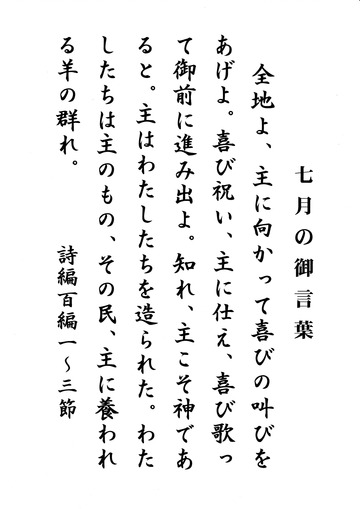 七月の御言葉
全地よ、主に向かって喜びの叫びを
あげよ。喜び祝い、主に仕え、喜び歌っ
て御前に進み出よ。知れ、主こそ神であ
ると。主はわたしたちを造られた。わた
したちは主のもの、その民、主に養われ
る羊の群れ。
詩編百編一～三節